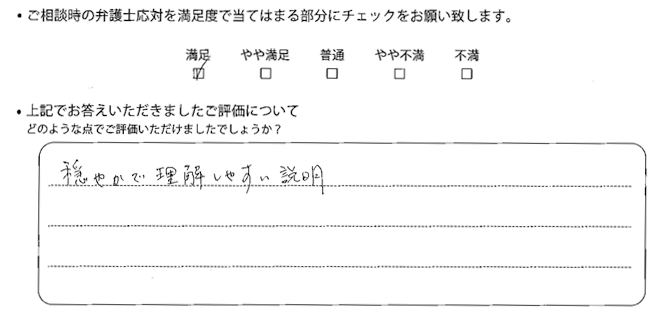 ・ご相談時の弁護士応対を満足度で当てはまる部分にチェックをお願い致します。
満足 やや満足 普通 やや不満 不満
☑ □ □ □ □
・上記でお答えいただきましたご評価について
どのような点でご評価いただけましたでしょうか？
穏やかで理解しやすい説明